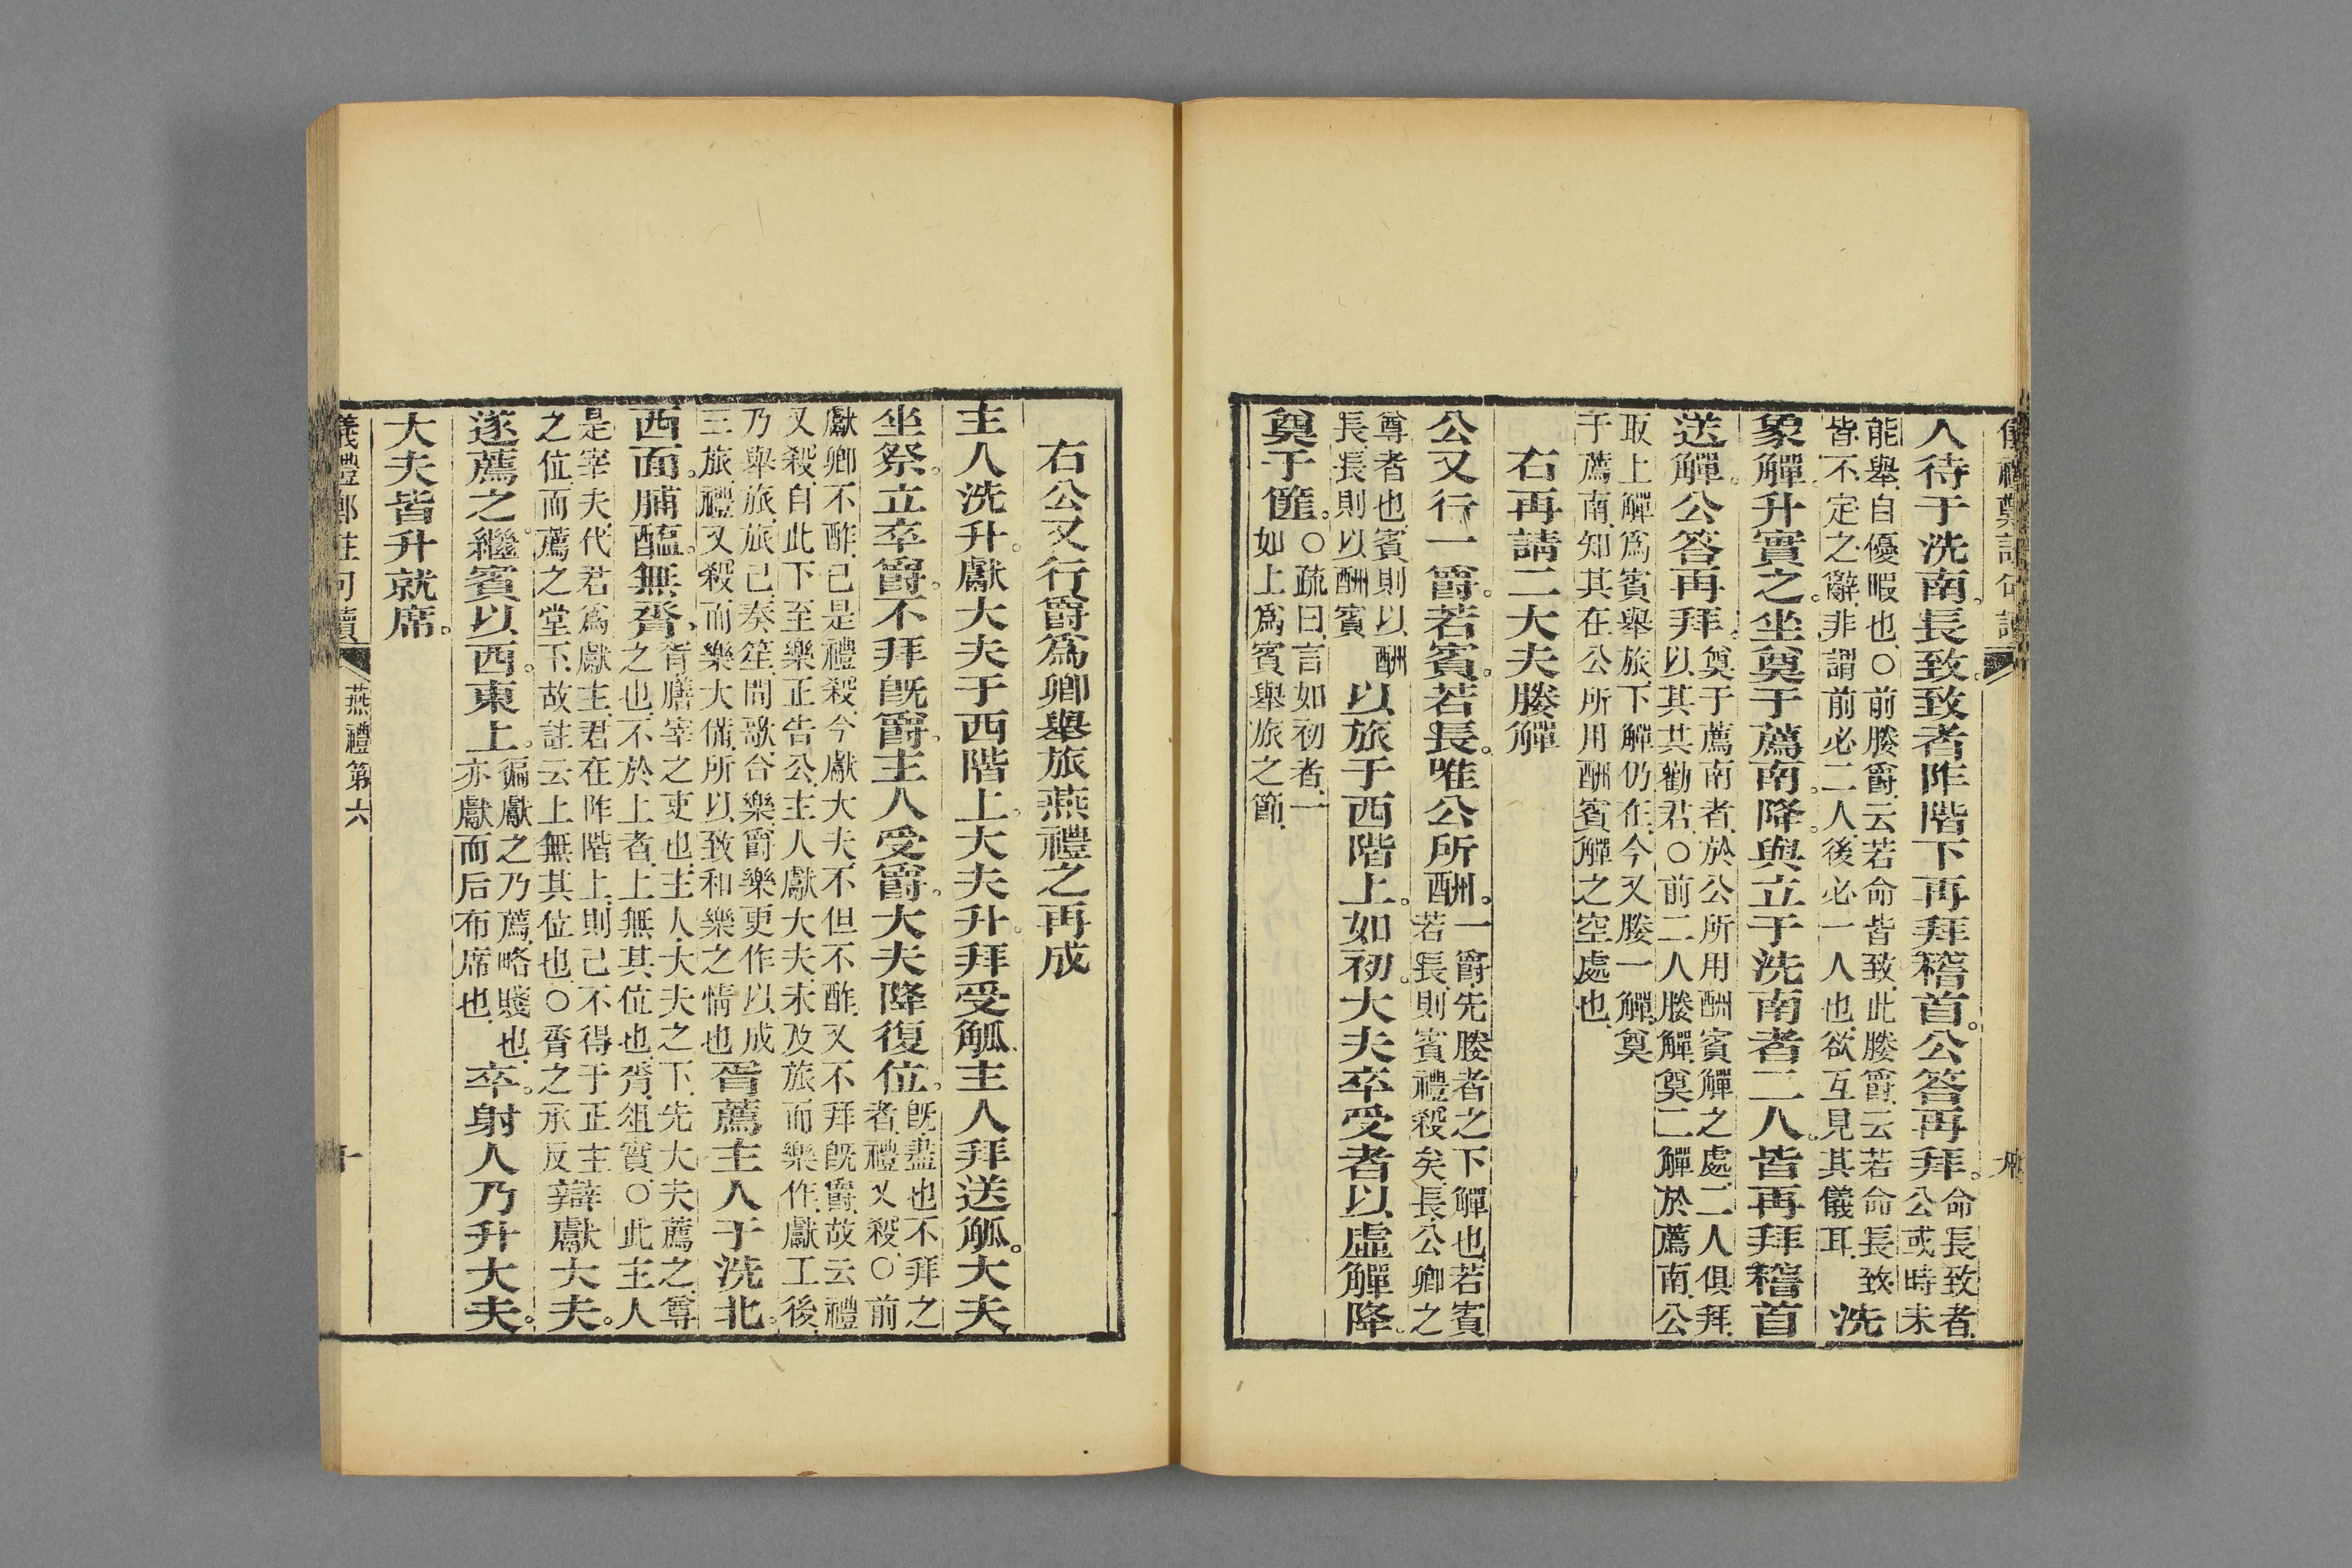 人待于洗南。長致。致者阼階下再拜稽首。公答再拜。
命長致者、
公或時未
能舉、自優暇也、○前媵爵云若命皆致、此媵爵云若命長致、
皆不定之辭、非謂前必二人、後必一人也、欲互見其儀耳、
洗
象觶升實之。坐奠于薦南。降。與立于洗南者二人。皆再拜稽首
送觶。公答再拜。
奠于薦南者、於公所用酬賓觶之處、二人俱拜、
以其共勸君、○前二人媵觶奠二觶於薦南、公
取上觶爲賓舉旅、下觶仍在、今又媵一觶、奠
于薦南、知其在公所用酬賓觶之空處也、
右再請二大夫媵觶
公又行一爵。若賓。若長。唯公所酬。
一爵、先媵者之下觶也、若賓
若長、則賓禮殺矣、長、公卿之
尊者也、賓則以酬
長、長則以酬賓
以旅于西階上。如初。大夫卒受者以虛觶降。
奠于篚。
○疏曰、言如初者、一
如上爲賓舉旅之節、
右公又行爵爲卿舉旅燕禮之再成
主人洗升。獻大夫于西階上。大夫升。拜受觚。主人拜送觚。大夫
坐祭。立卒爵。不拜旣爵。主人受爵。大夫降復位。
旣盡也、不拜之
者、禮又殺、○前
獻卿不酢、已是禮殺、今獻大夫、不但不酢、又不拜旣爵、故云禮
又殺、自此下至樂正告公、主人獻大夫、未及旅而樂作、獻工後、
乃舉旅、旅已、奏笙、間歌、合樂、爵樂更作、以成
三旅、禮又殺而樂大備、所以致和樂之情也
胥薦主人于洗北。
西面。脯醢。無脀。
胥、膳宰之吏也、主人、大夫之下、先大夫薦之、尊
之也、不於上者、上無其位也、脀、俎實、○此主人
是宰夫、代君爲獻主、君在阼階上、則已不得于正主
之位、而薦之堂下、故註云上無其位也、○脀之承反
辯獻大夫。
遂薦之。繼賓以西。東上。
徧獻之乃薦、略賤也、
亦獻而后布席也、
卒。射人乃升大夫。
大夫皆升就席。
燕禮第六
十